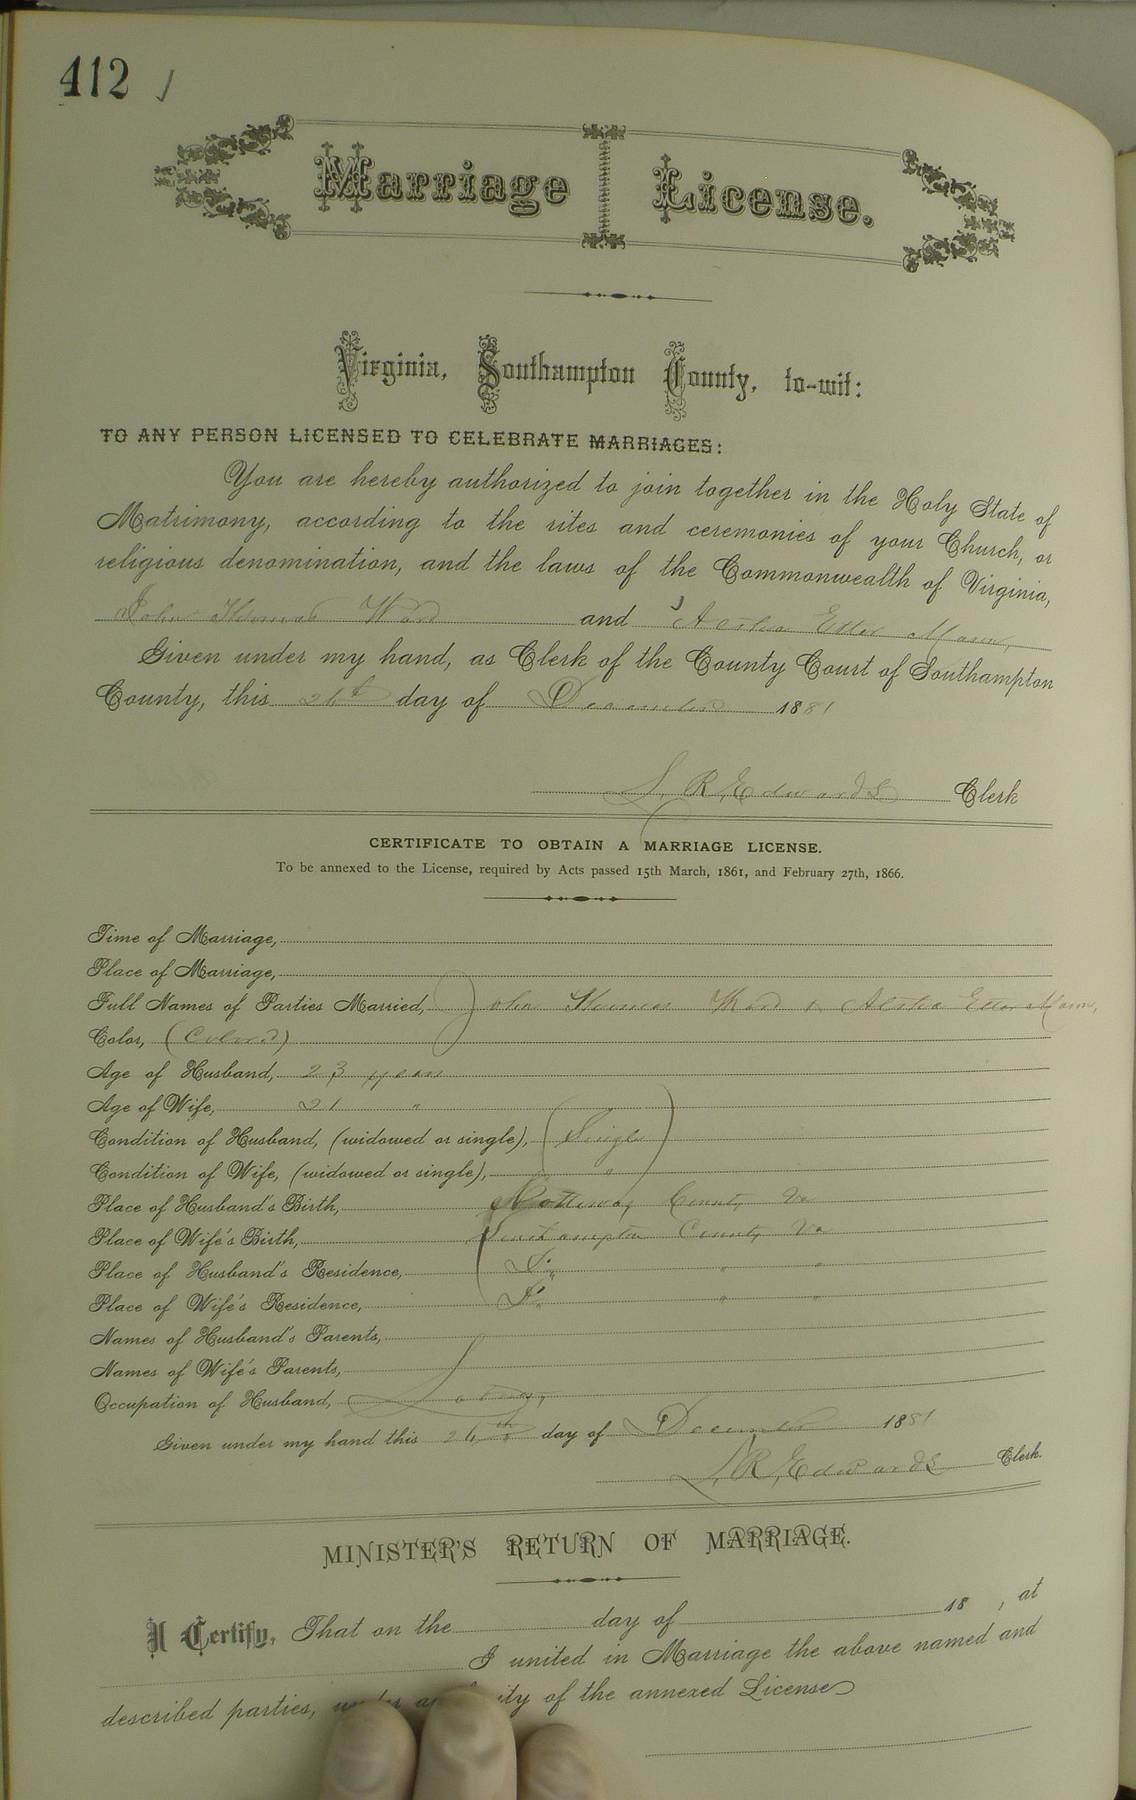 412
Marriage License.
Virginia, Southampton County, to-wit:
TO ANY PERSON LICENSED TO CELEBRATE MARRIAGES:
You are hereby authorized to join together in the Holy State of
Matrimony, according to the rites and ceremonies of your Church, or
religious denomination, and the laws of the Commonwealth of Virginia,
John Thomas Ward and Etter Mann,
Given under my hand, as Clerk of the County Court of Southampton
County, this 26th day of December 1881
L. R. Edwards Clerk
CERTIFICATE TO OBTAIN A MARRIAGE LICENSE.
To be annexed to the License, required by Acts passed 15th March, 1861, and February 27th, 1866.
Time of Marriage,
Place of Marriage,
Full Names of Parties Married, John Thomas Ward & Etter Mann,
Color, (Colored)
Age of Husband, 23 years
Age of Wife, 21 "
Condition of Husband, (widowed or single), (Single)
Condition of Wife, (widowed or single), "
Place of Husband's Birth, Nottoway County Va
Place of Wife's Birth, Southampton County Va
Place of Husband's Residence, Do " "
Place of Wife's Residence, Do " "
Names of Husband's Parents,
Names of Wife's Parents,
Occupation of Husband,
Given under my hand this 26th day of December 1881
L. R. Edwards Clerk.
MINISTER'S RETURN OF MARRIAGE.
I Certify, That on the day of 18 , at
I united in Marriage the above named and
described parties, under of the annexed License